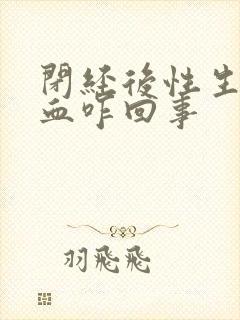 閉經後性生
血咋回事
羽飛飛